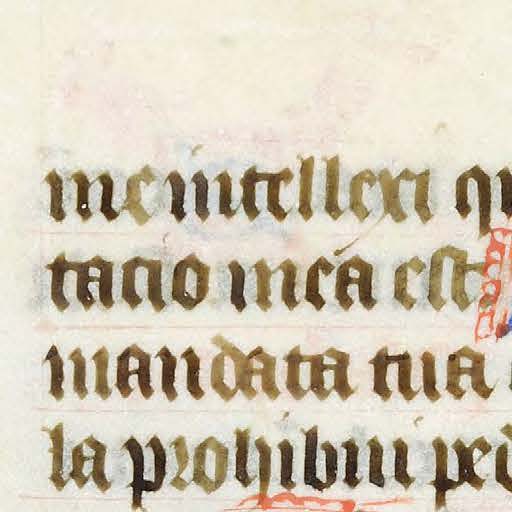 me intellexi
tacio mea est
mandata tua
la prohibui